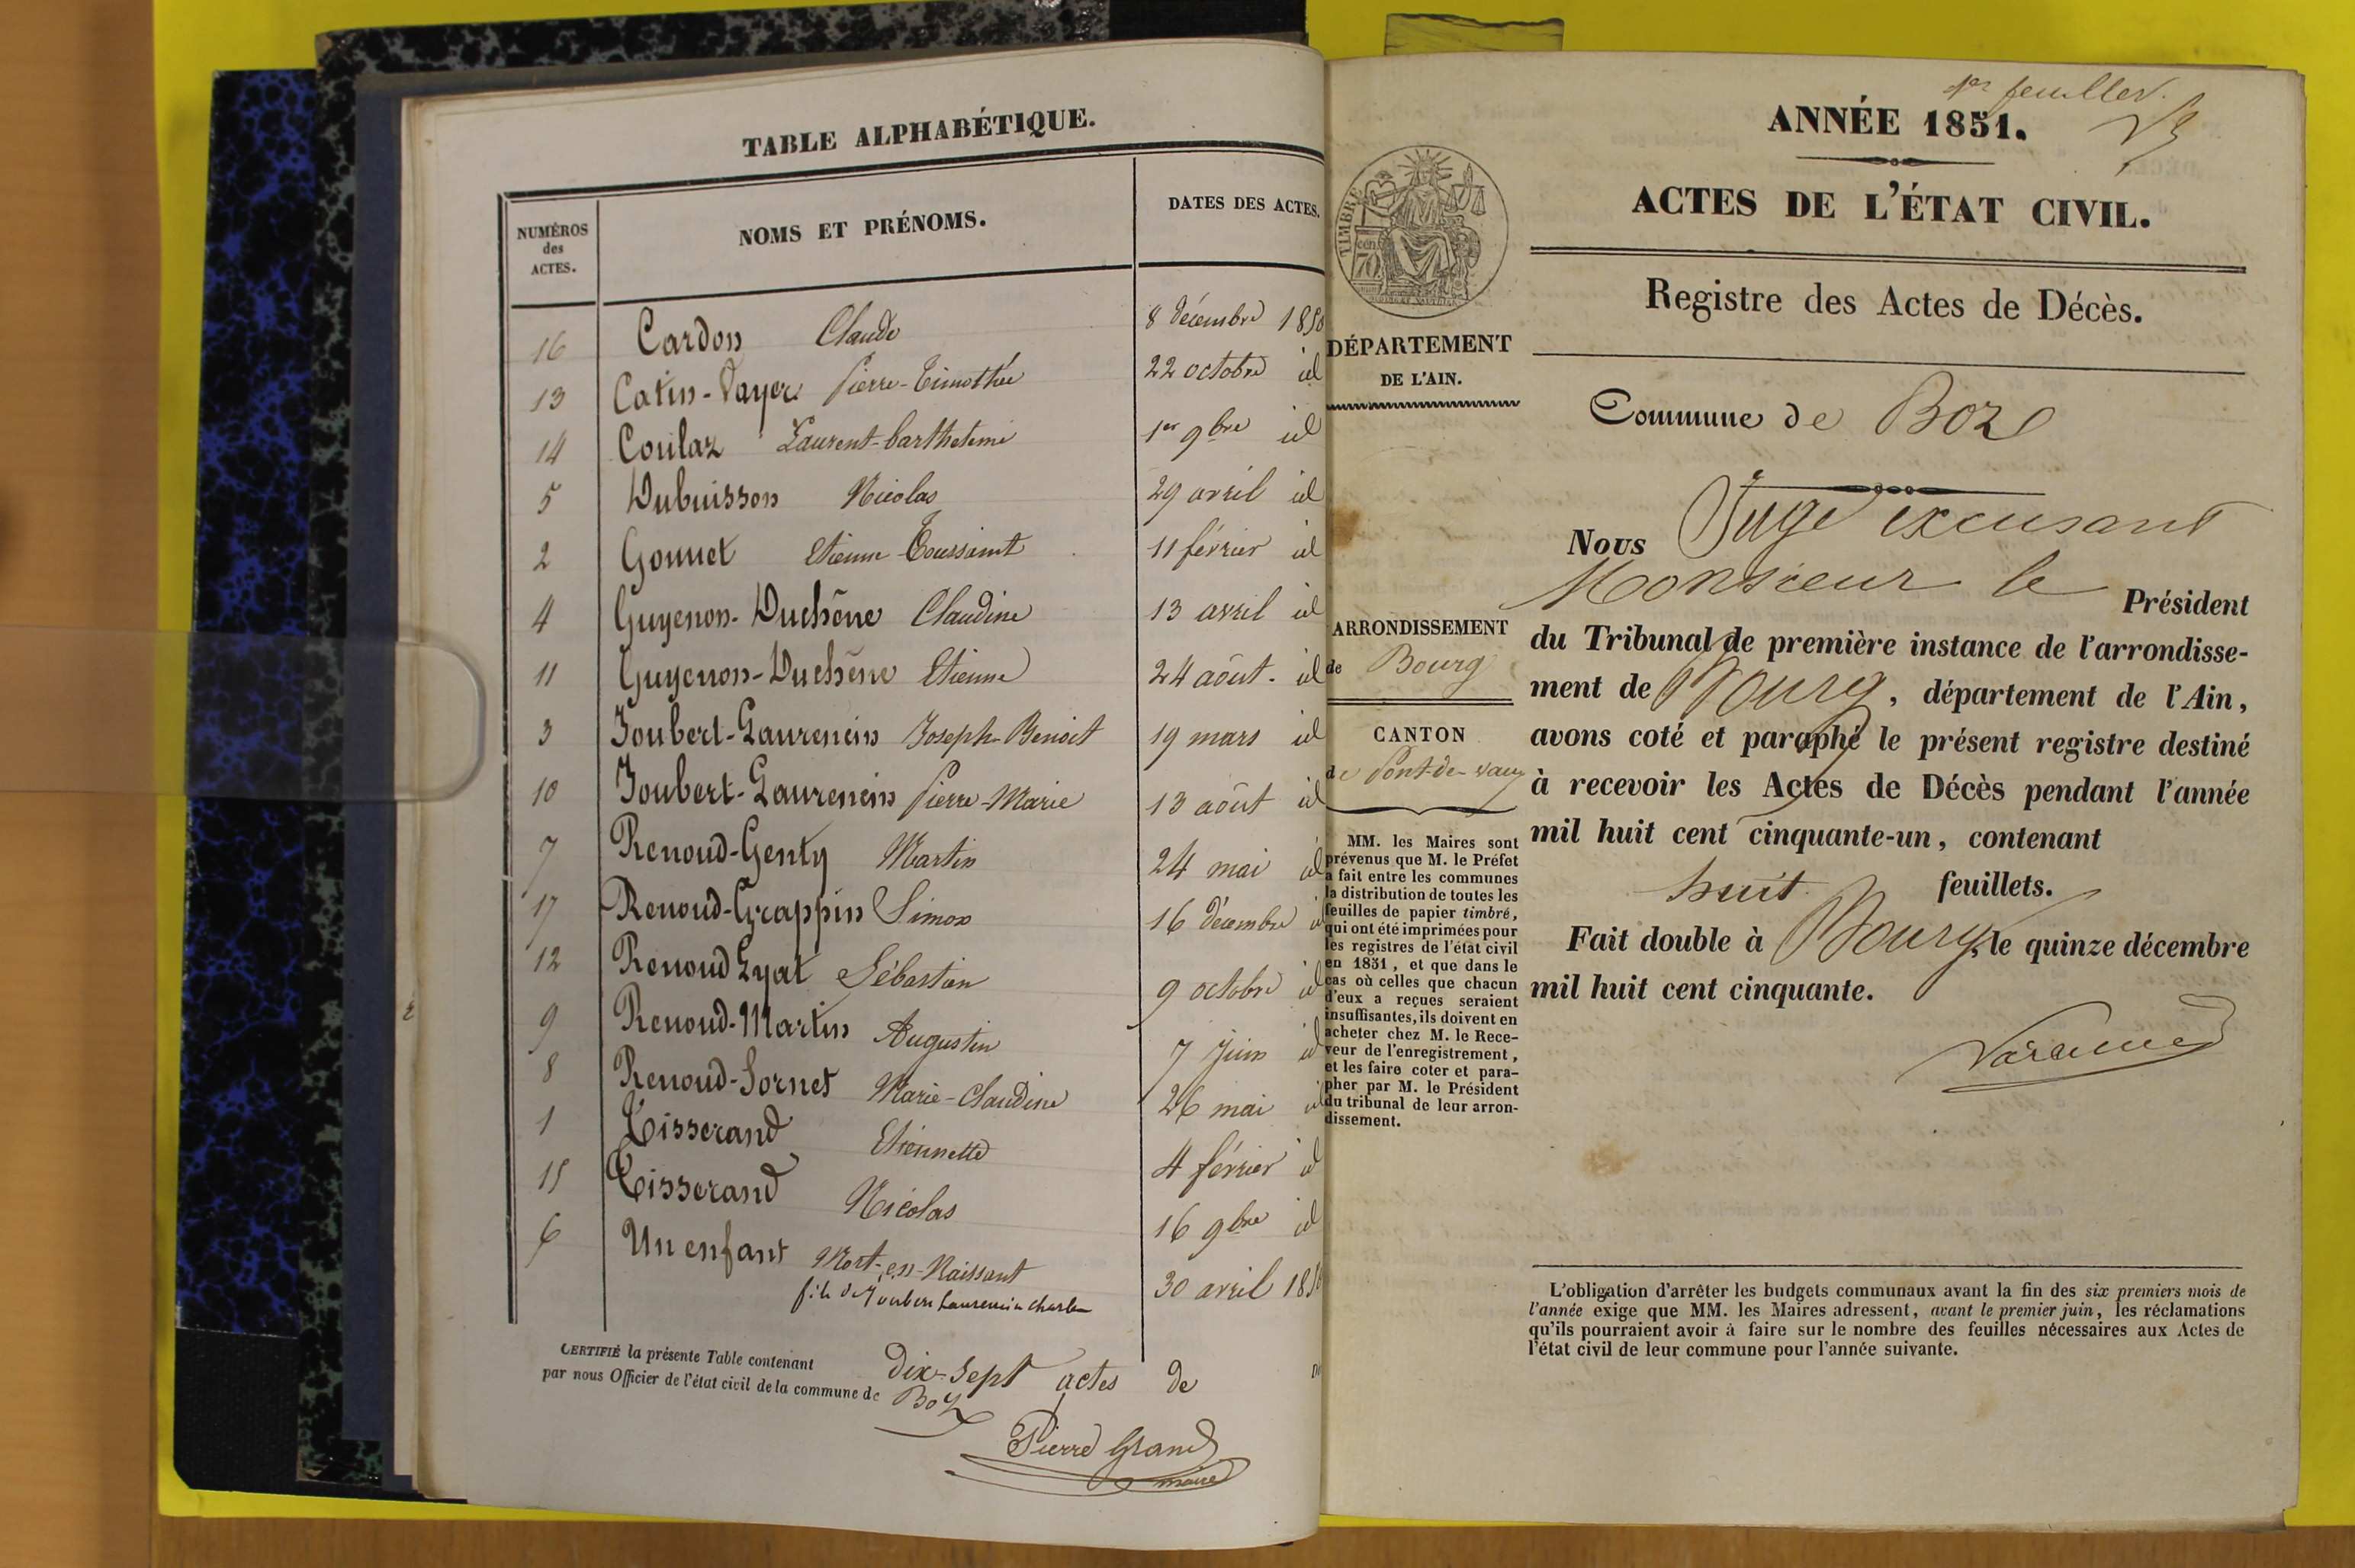 TABLE ALPHABÉTIQUE.
NUMÉROS des ACTES.
NOMS ET PRÉNOMS.
DATES DES ACTES.
16 Cardon Claude 8 décembre 1850
13 Catin-Vayer Pierre-Timothée 22 octobre id
14 Coulaz Laurent-barthelemi 1er 9bre id
5 Dubuisson Nicolas 29 avril id
2 Gonnet Etienne Toussaint 11 février id
4 Guyenon-Duchêne Claudine 13 avril id
11 Guyenon-Duchêne Etienne 24 août. id
3 Joubert-Laurencin Joseph-Benoit 19 mars id
10 Joubert-Laurencin Pierre-Marie 13 août id
7 Renoud-Genty Martin 24 mai id
17 Renoud-Grappin Simon 16 décembre id
12 Renoud Lyat Sébastien 9 octobre id
9 Renoud-Martin Augustin 7 juin id
8 Renoud-Sornet Marie-Claudine 26 mai id
1 Tisserand Etiennette 4 février id
15 Tisserand Nicolas 16 9bre id
6 Un enfant Mort-en-Naissant 30 avril 1850
fils de Joubert Laurencin Charles
CERTIFIÉ la présente Table contenant dix-sept actes de
par nous Officier de l'état civil de la commune de Boz
Pierre Grand
maire
1er feuillet.
ANNÉE 1851.
ACTES DE L'ÉTAT CIVIL.
Registre des Actes de Décès.
TIMBRE
70
cen.
DÉPARTEMENT
DE L'AIN.
Commune de Boz
ARRONDISSEMENT
de Bourg
CANTON
de Pont-de-vaux
MM. les Maires sont
prévenus que M. le Préfet
a fait entre les communes
la distribution de toutes les
feuilles de papier timbré,
qui ont été imprimées pour
les registres de l'état civil
en 1851, et que dans le
cas où celles que chacun
d'eux a reçues seraient
insuffisantes, ils doivent en
acheter chez M. le Rece-
veur de l'enregistrement,
et les faire coter et para-
pher par M. le Président
du tribunal de leur arron-
dissement.
Nous Juge excusant
Monsieur le Président
du Tribunal de première instance de l'arrondisse-
ment de Bourg, département de l'Ain,
avons coté et paraphé le présent registre destiné
à recevoir les Actes de Décès pendant l'année
mil huit cent cinquante-un, contenant
huit feuillets.
Fait double à Bourg, le quinze décembre
mil huit cent cinquante.
L'obligation d'arrêter les budgets communaux avant la fin des six premiers mois de
l'année exige que MM. les Maires adressent, avant le premier juin, les réclamations
qu'ils pourraient avoir à faire sur le nombre des feuilles nécessaires aux Actes de
l'état civil de leur commune pour l'année suivante.